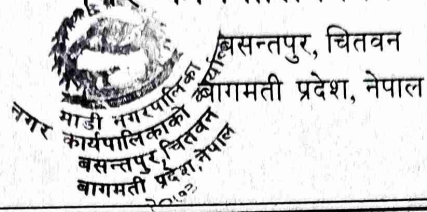 बसन्तपुर, चितवन
बागमती प्रदेश, नेपाल
माडी नगरपालिका
नगर कार्यपालिकाको कार्यालय
बसन्तपुर, चितवन
बागमती प्रदेश, नेपाल